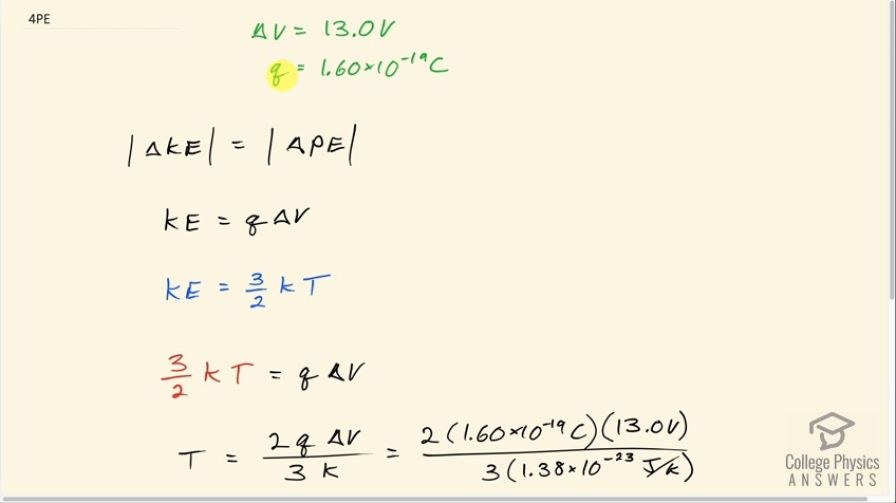 4PE
ΔV = 13.0V
q = 1.60×10⁻¹⁹C
|ΔKE| = |ΔPE|
KE = qΔV
KE = 3/2 kT
3/2 kT = qΔV
T = 2qΔV/3k = 2(1.60×10⁻¹⁹C)(13.0V)/3(1.38×10⁻²³ J/K)
College Physics
ANSWERS